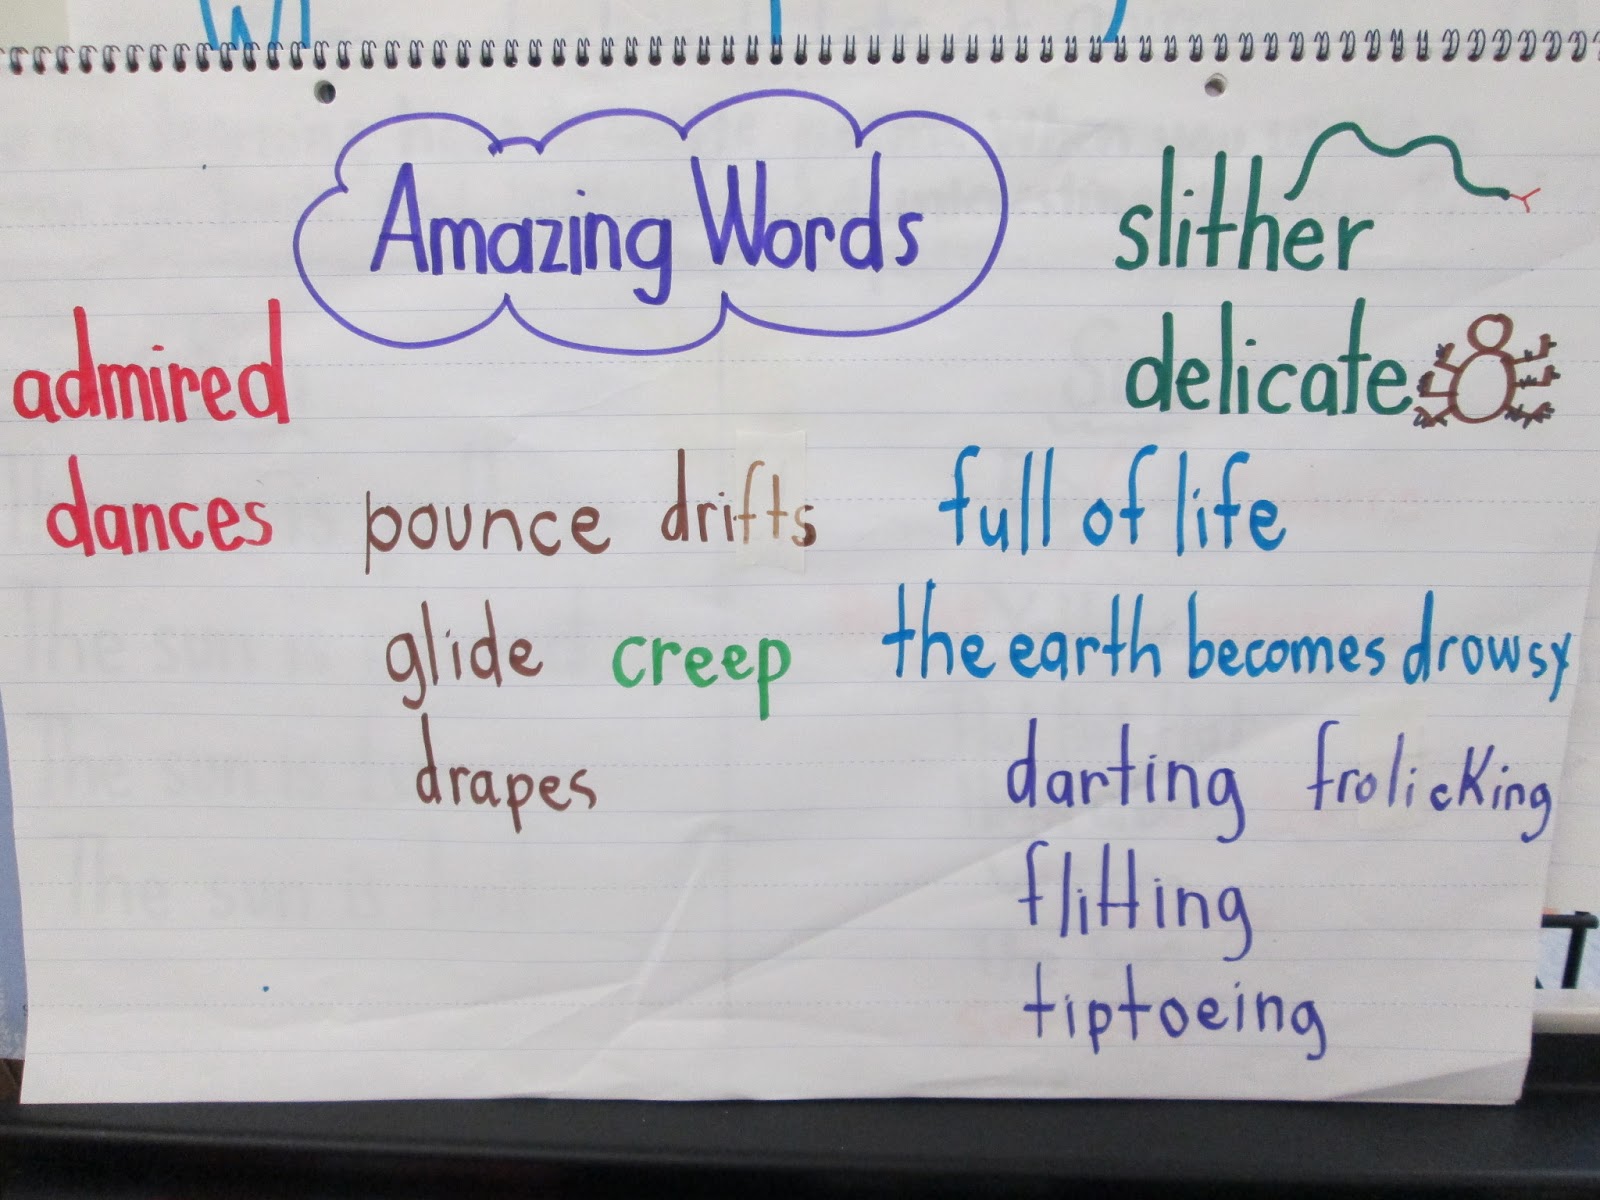 Amazing Words
slither
delicate
admired
dances
pounce drifts
glide creep
drapes
full of life
the earth becomes drowsy
darting frolicking
flitting
tiptoeing